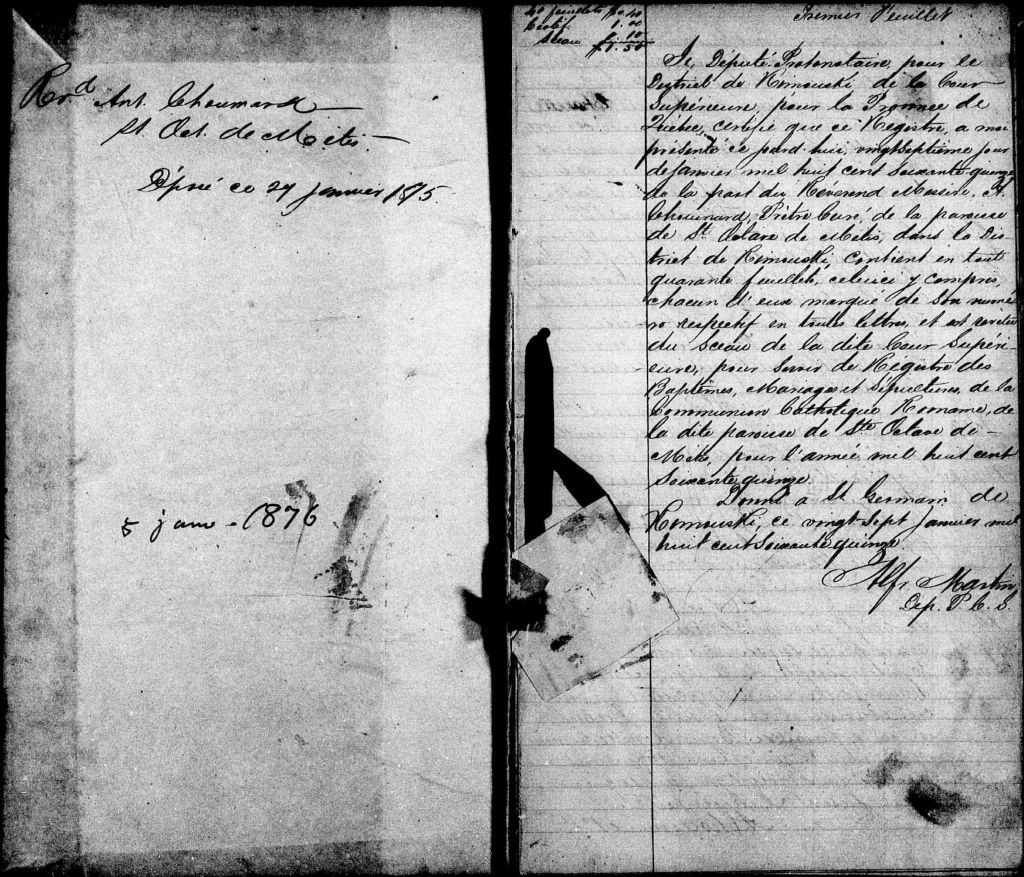 Rev.d Ant. Chouinard
St. Oct. de Métis.
Déposé ce 27 janvier 1875.
5 janv - 1876
40 feuillets
Certif. 1.00
Sceau 10
$1.50
Premier Feuillet
Je, Député Protonotaire, pour le
District de Rimouski de la Cour
Supérieure, pour la Province de
Québec, certifie que ce Régistre, a moi
présenté ce jourd'hui, vingt septième jour
de Janvier mil huit cent soixante quinze
de la part du Révérend Messire, A.
Chouinard, Prêtre Curé, de la paroisse
de St. Octave de Métis, dans le Dis
trict de Rimouski, contient en tout
quarante feuillets, celui ci y compris,
chacun d'eux marqué de son numé
ro respectif en toutes lettres, et est revêtu
du Sceau de la dite Cour Supéri-
eure, pour servir de Régistre des
Baptêmes, Mariages et Sépultures, de la
Communion Catholique Romaine, de
la dite paroisse de Ste Octave de -
Métis, pour l'année mil huit cent
Soixante quinze.
Donné a St Germain de
Rimouski, ce vingt Sept Janvier mil
huit cent Soixante quinze.
Alfr Martin
Dep. P. C. S.